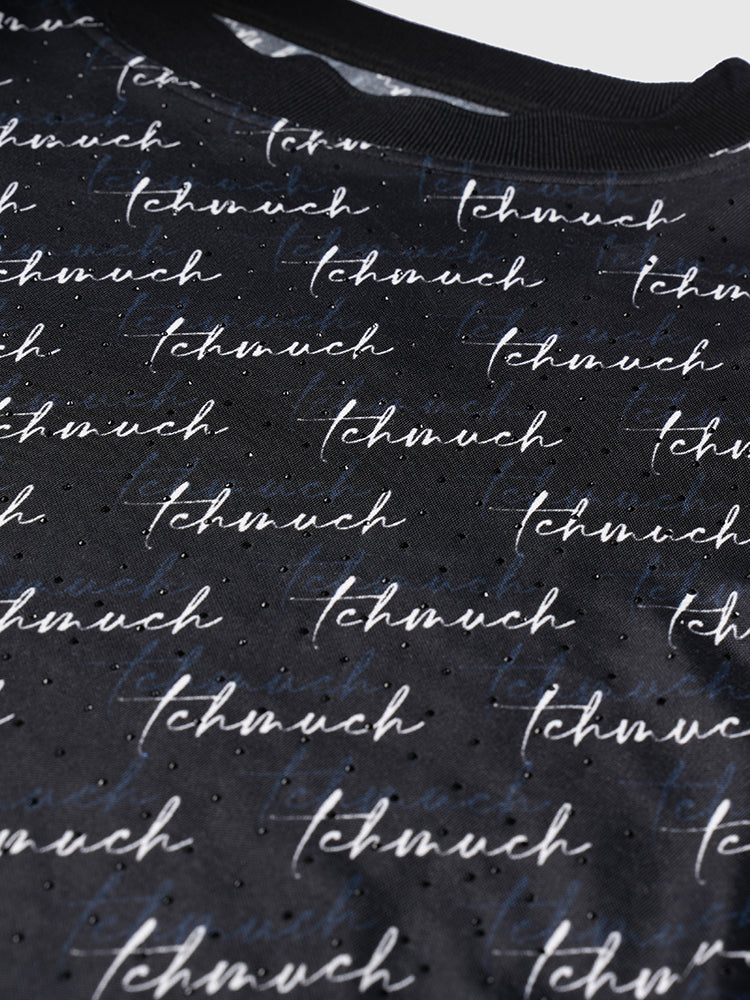 much
tch
hmuch tchm
h tchmuch tchmuch
chmuch tchmuch tchm
ch tchmuch tchmuch
tchmuch tchmuch tch
h tchmuch tchmuch
hmuch tchmuch tch
tchmuch tchmuc
much tchmuch t
tchmuch tchmu